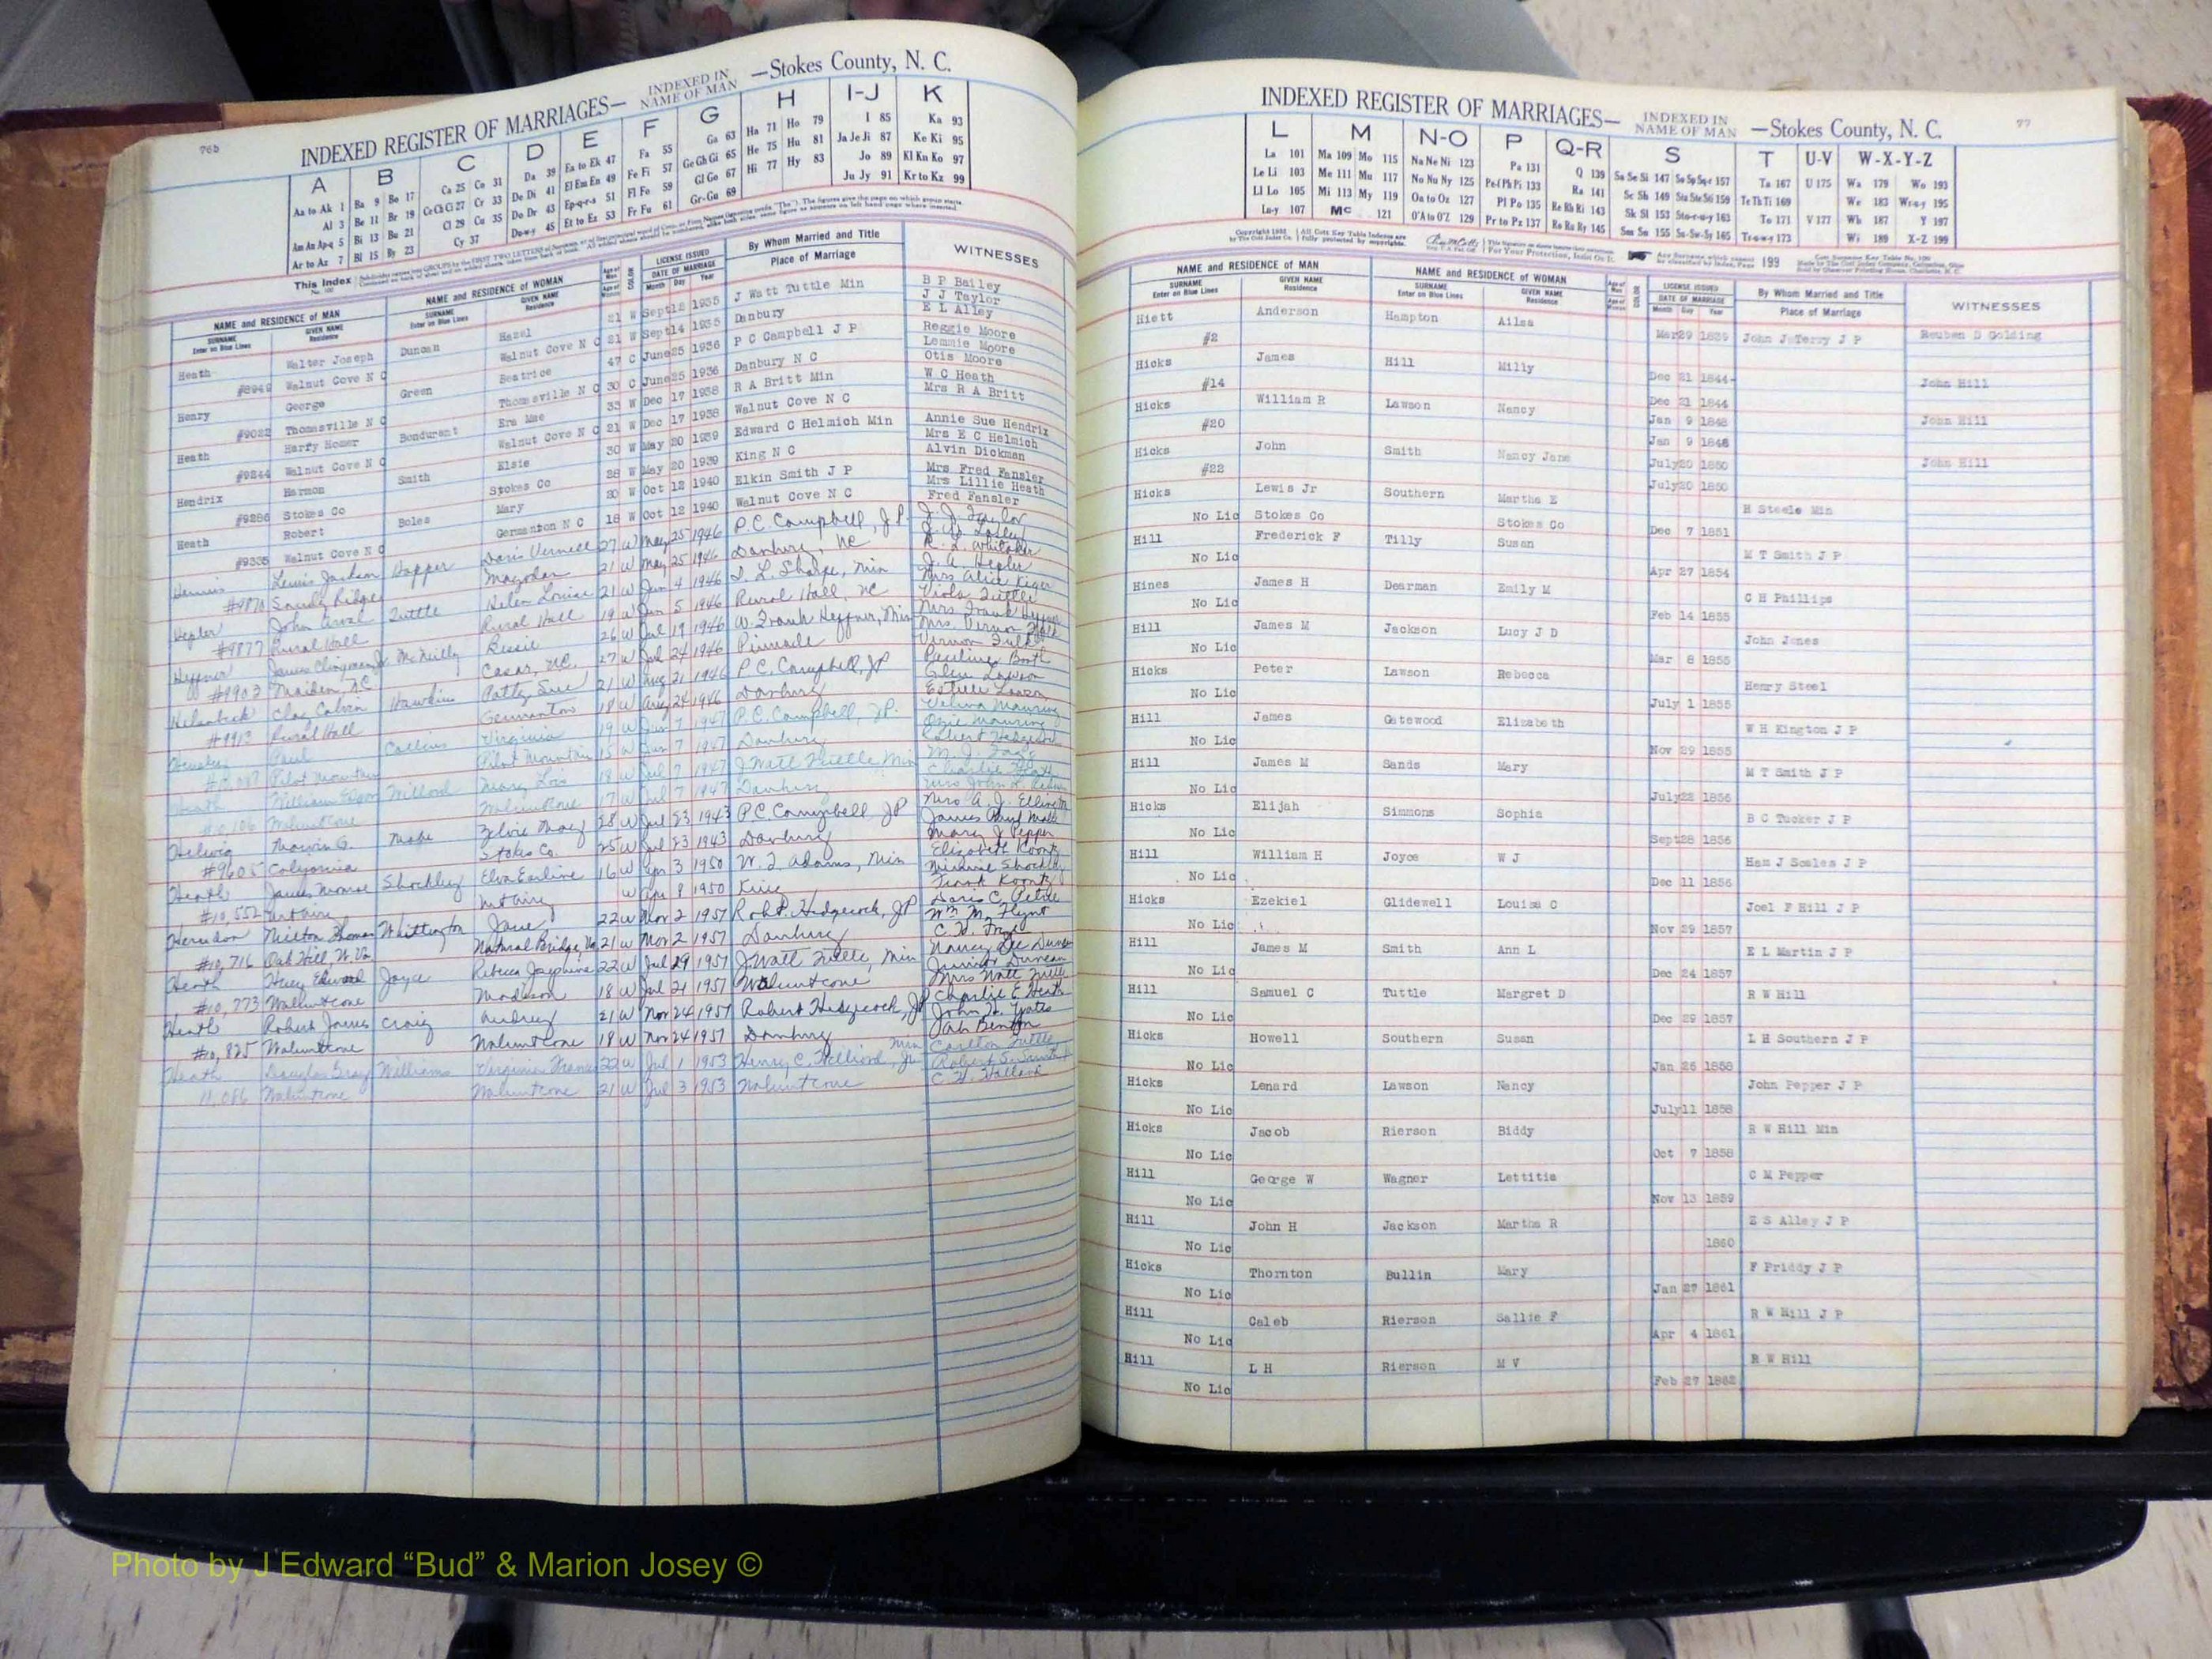 76b
INDEXED REGISTER OF MARRIAGES— INDEXED IN NAME OF MAN —Stokes County, N. C.
A B C D E F G H I-J K
Aa to Ak 1 Ba 9 Bo 17 Ca 25 Co 31 Da 39 Ea to Ek 47 Fa 55 Ga 63 Ha 71 Ho 79 I 85 Ka 93
Al 3 Be 11 Br 19 Ce Ch Ci 27 Cr 33 De Di 41 El Em En 49 Fe Fi 57 Ge Gh Gi 65 He 75 Hu 81 Ja Je Ji 87 Ke Ki 95
Am An Ap-q 5 Bi 13 Bu 21 Cl 29 Cu 35 Do Dr 43 Ep-q-r-s 51 Fl Fo 59 Gl Go 67 Hi 77 Hy 83 Jo 89 Kl Kn Ko 97
Ar to Az 7 Bl 15 By 23 Cy 37 Du-w-y 45 Et to Ez 53 Fr Fu 61 Gr-Gu 69 Ju Jy 91 Kr to Kz 99
This Index
NAME and RESIDENCE of MAN NAME and RESIDENCE of WOMAN LICENSE ISSUED By Whom Married and Title WITNESSES
SURNAME Enter on Blue Lines GIVEN NAME Residence SURNAME Enter on Blue Lines GIVEN NAME Residence COLOR DATE OF MARRIAGE Month Day Year Place of Marriage
Heath Walter Joseph Duncan Hazel 21 W Sept 12 1935 J Watt Tuttle Min B P Bailey
#8949 Walnut Cove N C Walnut Cove N C 21 W Sept 14 1935 Danbury J J Taylor
E L Alley
Henry George Green Beatrice 47 C June 25 1936 P C Campbell J P Reggie Moore
#9022 Thomasville N C Thomasville N C 30 C June 25 1936 Danbury N C Lemmie Moore
Otis Moore
Heath Harry Homer Bondurant Era Mae 33 W Dec 17 1938 R A Britt Min W C Heath
#9244 Walnut Cove N C Walnut Cove N C 21 W Dec 17 1938 Walnut Cove N C Mrs R A Britt
Hendrix Harmon Smith Elsie 30 W May 20 1939 Edward C Helmich Min Annie Sue Hendrix
#9286 Stokes Co Stokes Co 28 W May 20 1939 King N C Mrs E C Helmich
Alvin Dickman
Heath Robert Boles Mary 20 W Oct 12 1940 Elkin Smith J P Mrs Fred Fansler
#9335 Walnut Cove N C Germanton N C 18 W Oct 12 1940 Walnut Cove N C Mrs Lillie Heath
Fred Fansler
Lewis Jackson Hopper Doris Vernell 27 W May 25 1946 P.C. Campbell, J P. J. J. Taylor
#9870 Sandy Ridge Mayodan 21 W May 25 1946 Danbury, NC
Hepler John Tuttle Helen Louise 21 W Jun 4 1946 I. L. Sharpe, Min J. A. Hepler
#9877 Rural Hall Rural Hall 19 W Jun 5 1946 Rural Hall, NC Mrs Alice Kiger
Viola Tuttle
Heffner McNeilly Bessie 26 W Jul 19 1946 W. Frank Heffner, Min Mrs Frank Heffner
#9903 Maiden, NC Casar, NC. 27 W Jul 24 1946 Pinnacle Mrs. Vernon Fulk
Vernon Fulk
Clay Calvin Hawkins Patty Sue 21 W Aug 21 1946 P C. Campbell, JP Pauline Booth
#9913 Rural Hall Germanton 18 W Aug 24 1946 Danbury Glen Lawson
Estelle Lawson
Paul Collins Virginia 19 W Jun 7 1947 P.C. Campbell, JP.
Pilot Mountain Pilot Mountain 15 W Jun 7 1947 Danbury
Heath William Mary Lois 18 W Jul 7 1947 J Watt Tuttle Min
#10,106 Walnut Cove Walnut Cove 17 W Jul 7 1947 Danbury
Helwig Marvin G. Mabe 28 W Jul 23 1943 P.C. Campbell JP
#9605 California Stokes Co. 25 W Jul 23 1943 Danbury Mary J Pepper
Heath James Monroe Shockley Elva Earline 16 W Apr 3 1950 W. F. Adams, Min Elizabeth Koontz
#10,552 Mt airy Mt airy W Apr 8 1950 King Minnie Shockley
Frank Koontz
Herndon Milton Thomas Whittington Jane 22 W Nov 2 1951 Robt. Hedgecock, JP
#10,716 Oak Hill, W. Va. Natural Bridge, Va 21 W Nov 2 1951 Danbury Wm M. Flynt
Heath Huey Edward Joyce Rebecca Josephine 22 W Jul 29 1951 J. Watt Tuttle, Min Nancy Lee Duncan
#10,773 Walnut cove Madison 18 W Jul 21 1951 Walnut cove Junior Duncan
Mrs Watt Tuttle
Heath Robert James Craig Audrey 21 W Nov 24 1951 Robert Hedgecock, JP Charlie E Heath
#10,825 Walnut cove Walnut Cove 18 W Nov 24 1951 Danbury John H. Yates
Jah Benton
Heath Douglas Gray Williams Virginia 22 W Jul 1 1953 Henry C. Hilliard, Jr Min Carlton Tuttle
11,086 Walnut cove Walnut Cove 21 W Jul 3 1953 Walnut Cove
77
INDEXED REGISTER OF MARRIAGES— INDEXED IN NAME OF MAN —Stokes County, N. C.
L M N-O P Q-R S T U-V W-X-Y-Z
La 101 Ma 109 Mo 115 Na Ne Ni 123 Pa 131 Q 139 Sa Se Si 147 So Sp Sq-r 157 Ta 167 U 175 Wa 179 Wo 193
Le Li 103 Me 111 Mu 117 No Nu Ny 125 Pe-f Ph Pi 133 Ra 141 Sc Sh 149 Sta Ste Sti 159 Te Th Ti 169 We 183 Wr-u-y 195
Ll Lo 105 Mi 113 My 119 Oa to Oz 127 Pl Po 135 Re Rh Ri 143 Sk Sl 153 Sto-r-u-y 163 To 171 V 177 Wh 187 Y 197
Lu-y 107 Mc 121 O'A to O'Z 129 Pr to Pz 137 Ro Ru Ry 145 Sm Sn 155 Su-Sw-Sy 165 Tr-u-w-y 173 Wi 189 X-Z 199
NAME and RESIDENCE of MAN NAME and RESIDENCE of WOMAN LICENSE ISSUED By Whom Married and Title WITNESSES
SURNAME Enter on Blue Lines GIVEN NAME Residence SURNAME Enter on Blue Lines GIVEN NAME Residence COLOR DATE OF MARRIAGE Month Day Year Place of Marriage
Hiett Anderson Hampton Ailsa
#2 Mar 29 1839 John J Terry J P Reuben D Golding
Hicks James Hill Milly Dec 21 1844 John Hill
#14 Dec 21 1844
Hicks William R Lawson Nancy Jan 9 1848 John Hill
#20 Jan 9 1848
Hicks John Smith Nancy Jane July 20 1850 John Hill
#22 July 20 1850
Hicks Lewis Jr Southern Martha E H Steele Min
No Lic Stokes Co Stokes Co Dec 7 1851
Hill Frederick F Tilly Susan M T Smith J P
No Lic Apr 27 1854
Hines James H Dearman Emily M C H Phillips
No Lic Feb 14 1855
Hill James M Jackson Lucy J D John Jones
No Lic Mar 8 1855
Hicks Peter Lawson Rebecca Henry Steel
No Lic July 1 1855
Hill James Gatewood Elizabeth W H Kington J P
No Lic Nov 29 1855
Hill James M Sands Mary M T Smith J P
No Lic July 22 1856
Hicks Elijah Simmons Sophia B C Tucker J P
No Lic Sept 28 1856
Hill William H Joyce W J Ham J Scales J P
No Lic Dec 11 1856
Hicks Ezekiel Glidewell Louisa C Joel F Hill J P
No Lic Nov 29 1857
Hill James M Smith Ann L E L Martin J P
No Lic Dec 24 1857
Hill Samuel C Tuttle Margret D R W Hill
No Lic Dec 29 1857
Hicks Howell Southern Susan L H Southern J P
No Lic Jan 26 1858
Hicks Lenard Lawson Nancy John Pepper J P
No Lic July 11 1858
Hicks Jacob Rierson Biddy R W Hill Min
No Lic Oct 7 1858
Hill George W Wagner Lettitia C M Pepper
No Lic Nov 13 1859
Hill John H Jackson Martha R Z S Alley J P
No Lic 1860
Hicks Thornton Bullin Mary F Priddy J P
No Lic Jan 27 1861
Hill Caleb Rierson Sallie F R W Hill J P
No Lic Apr 4 1861
Hill L H Rierson M V R W Hill
No Lic Feb 27 1862
Photo by J Edward “Bud” & Marion Josey ©